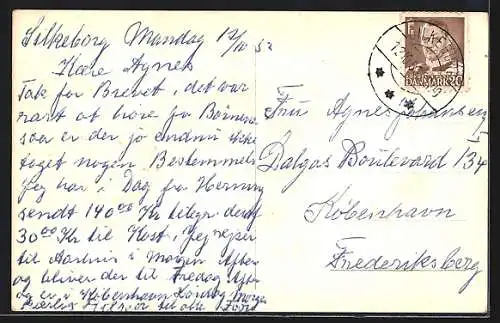 Silkeborg Mandag 12/10 52
Kære Agnes
Tak for Brevet, det var
rart at høre fra Børnene
saa er der jo endnu ikke
taget nogen Bestemmelse
Jeg har i Dag fra Herning
sendt 140 00 Kr telegr. deraf
30 00 Kr til Kost, Jeg rejser
til Aarhus i Morgen Aften
og bliver der til Fredag Aften
og er i København Lørdag Morgen
Kærlig Hilsen til alle
Fru Agnes Johansen
Dalgas Boulevard 134
København
Frederiksberg
SILKEBORG
DANMARK 20